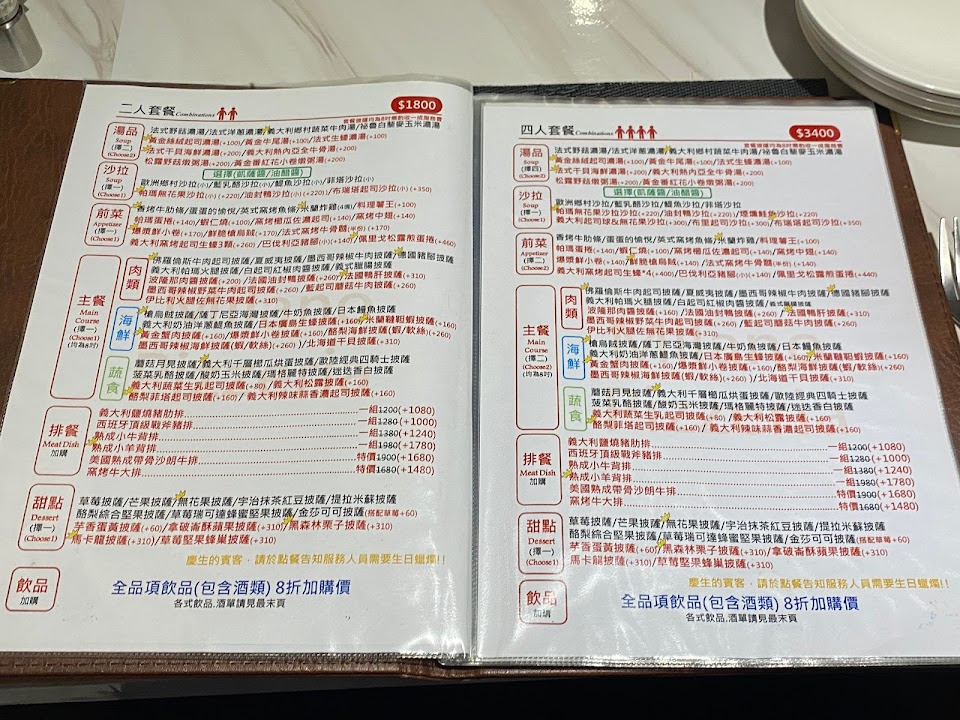 二人套餐 Combinations $1800
套餐披薩均為8吋需酌收一成服務費
湯品 (擇二) (Choose2)
法式野菇濃湯/法式洋蔥濃湯/義大利鄉村蔬菜牛肉湯/祕魯白藜麥玉米濃湯
黃金絲絨起司濃湯(+100)/黃金牛尾湯(+100)/法式生蠔濃湯(+100)
法式干貝海鮮濃湯(+200)/義大利熱內亞全牛骨湯(+200)
松露野菇燉粥湯(+200)/黃金番紅花小卷燉粥(+200)
選擇(凱薩醬/油醋醬)
沙拉 (擇一) (Choose1)
歐洲鄉村沙拉(小)/藍乳酪沙拉(小)/鯷魚沙拉(小)/菲塔沙拉(小)
帕瑪無花果沙拉(小)/油封鴨沙拉(小)(+220)/布瑞塔起司沙拉(小)(+350)
前菜 Appetizer (擇一) (Choose1)
香烤牛肋條/蛋蛋的愉悅/英式窯烤魚條/米蘭炸雞(4塊)/料理薯王(+100)
帕瑪蛋捲(+140)/蝦仁燒(+100)/窯烤櫛瓜佐濃起司(+140)/窯烤中翅(+140)
爆漿鮮小卷(+170)/鮮脆槍烏賊(+170)/法式窯烤牛骨髓(半份)(+170)
義大利窯烤起司生蠔3顆(+260)/巴伐利亞豬腳(小)(+140)/佩里戈松露煎蛋捲(+460)
主餐 Main Course (擇一) (Choose1) (均為8吋)
肉類
佛羅倫斯牛肉起司披薩/夏威夷披薩/墨西哥辣椒牛肉披薩/德國豬腳披薩
義大利帕瑪火腿披薩/白起司紅椒肉醬披薩/義式臘腸披薩
波隆那肉醬披薩(+160)/法國油封鴨披薩(+260)/法國鴨肝披薩(+310)
墨西哥辣椒野菜牛肉起司披薩(+260)/藍起司蘑菇牛肉披薩(+260)
伊比利火腿佐無花果披薩(+310)
海鮮
槍烏賊披薩/薩丁尼亞海灣披薩/牛奶魚披薩/日本鰻魚披薩
義大利奶油洋蔥鯷魚披薩/日本廣島生蠔披薩(+160)/米蘭韃靼蝦披薩(+160)
黃金蟹肉披薩(+160)/爆漿鮮小卷披薩(+160)/酪梨海鮮披薩(蝦/軟絲)(+260)
墨西哥辣椒海鮮披薩(蝦/軟絲)(+260))/北海道干貝披薩(+310)
蔬食
蘑菇月見披薩/義大利千層櫛瓜烘蛋披薩/歐陸經典四騎士披薩
菠菜乳酪披薩/酸奶玉米披薩/瑪格麗特披薩/迷迭香白披薩
義大利蔬菜生乳起司披薩(+80)/義大利松露披薩(+160)
酪梨菲塔起司披薩(+160)/義大利辣味蒜香濃起司披薩(+160)
排餐 Meat Dish 加購
義大利鹽燒豬肋排 一組1200(+1080)
西班牙頂級戰斧豬排 一組1280(+1000)
熟成小牛背排 一組1380(+1240)
熟成小羊背排 一組1980(+1780)
美國熟成帶骨沙朗牛排 特價1900(+1680)
窯烤牛大排 特價1680(+1480)
甜點 Dessert (擇一) (Choose1)
草莓披薩/芒果披薩/無花果披薩/宇治抹茶紅豆披薩/提拉米蘇披薩
酪梨綜合堅果披薩/草莓瑞可達蜂蜜堅果披薩/金莎可可披薩(搭配草莓+60)
芋香蛋黃披薩(+60)/拿破崙酥蘋果披薩(+310)/黑森林栗子披薩(+310)
馬卡龍披薩(+310)/草莓堅果蜂巢披薩(+310)
慶生的賓客,請於點餐告知服務人員需要生日蠟燭!!
飲品 加購
全品項飲品(包含酒類) 8折加購價
各式飲品,酒單請見最末頁
四人套餐 Combinations $3400
套餐披薩均為8吋需酌收一成服務費
湯品 (擇四) (Choose2)
法式野菇濃湯/法式洋蔥濃湯/義大利鄉村蔬菜牛肉湯/祕魯白藜麥玉米濃湯
黃金絲絨起司濃湯(+100)/黃金牛尾湯(+100)/法式生蠔濃湯(+100)
法式干貝海鮮濃湯(+200)/義大利熱內亞全牛骨湯(+200)
松露野菇燉粥湯(+200)/黃金番紅花小卷燉粥(+200)
選擇(凱薩醬/油醋醬)
沙拉 (擇一) (Choose1)
歐洲鄉村沙拉/藍乳酪沙拉/鯷魚沙拉/菲塔沙拉
帕瑪無花果沙拉沙拉(+220)/油封鴨沙拉(+220)/煙燻鮭魚沙拉(+220)
義大利起司球&無花果沙拉(+300)/布里起司沙拉(+300)/布瑞塔起司沙拉(+300)
前菜 Appetizer (擇二) (Choose2)
香烤牛肋條/蛋蛋的愉悅/英式窯烤魚條/米蘭炸雞/料理薯王(+100)
帕瑪蛋捲(+140)/蝦仁燒(+100)/窯烤櫛瓜佐濃起司(+140)/窯烤中翅(+140)
爆漿鮮小卷(+140)/鮮脆槍烏賊(+140)/法式窯烤牛骨髓(+140)
義大利窯烤起司生蠔*4(+400)/巴伐利亞豬腳(+140)/佩里戈松露煎蛋捲(+440)
主餐 Main Course (擇二) (Choose2) (均為8吋)
肉類
佛羅倫斯牛肉起司披薩/夏威夷披薩/墨西哥辣椒牛肉披薩/德國豬腳披薩
義大利帕瑪火腿披薩/白起司紅椒肉醬披薩/義式臘腸披薩
波隆那肉醬披薩(+160)/法國油封鴨披薩(+260)/法國鴨肝披薩(+310)
墨西哥辣椒野菜牛肉起司披薩(+260)/藍起司蘑菇牛肉披薩(+260)
伊比利火腿佐無花果披薩(+310)
海鮮
槍烏賊披薩/薩丁尼亞海灣披薩/牛奶魚披薩/日本鰻魚披薩
義大利奶油洋蔥鯷魚披薩/日本廣島生蠔披薩(+160)/米蘭韃靼蝦披薩(+160)
黃金蟹肉披薩(+160)/爆漿鮮小卷披薩(+160)/酪梨海鮮披薩(蝦/軟絲)(+260)
墨西哥辣椒海鮮披薩(蝦/軟絲)(+260))/北海道干貝披薩(+310)
蔬食
蘑菇月見披薩/義大利千層櫛瓜烘蛋披薩/歐陸經典四騎士披薩
菠菜乳酪披薩/酸奶玉米披薩/瑪格麗特披薩/迷迭香白披薩
義大利蔬菜生乳起司披薩(+80)/義大利松露披薩(+160)
酪梨菲塔起司披薩(+160)/義大利辣味蒜香濃起司披薩(+160)
排餐 Meat Dish 加購
義大利鹽燒豬肋排 一組1200(+1080)
西班牙頂級戰斧豬排 一組1280(+1000)
熟成小牛背排 一組1380(+1240)
熟成小羊背排 一組1980(+1780)
美國熟成帶骨沙朗牛排 特價1900(+1680)
窯烤牛大排 特價1680(+1480)
甜點 Dessert (擇一) (Choose1)
草莓披薩/芒果披薩/無花果披薩/宇治抹茶紅豆披薩/提拉米蘇披薩
酪梨綜合堅果披薩/草莓瑞可達蜂蜜堅果披薩/金莎可可披薩(搭配草莓+60)
芋香蛋黃披薩(+60)/黑森林栗子披薩(+310)/拿破崙酥蘋果披薩(+310)
馬卡龍披薩(+310)/草莓堅果蜂巢披薩(+310)
慶生的賓客,請於點餐告知服務人員需要生日蠟燭!!
飲品 加購
全品項飲品(包含酒類) 8折加購價
各式飲品,酒單請見最末頁